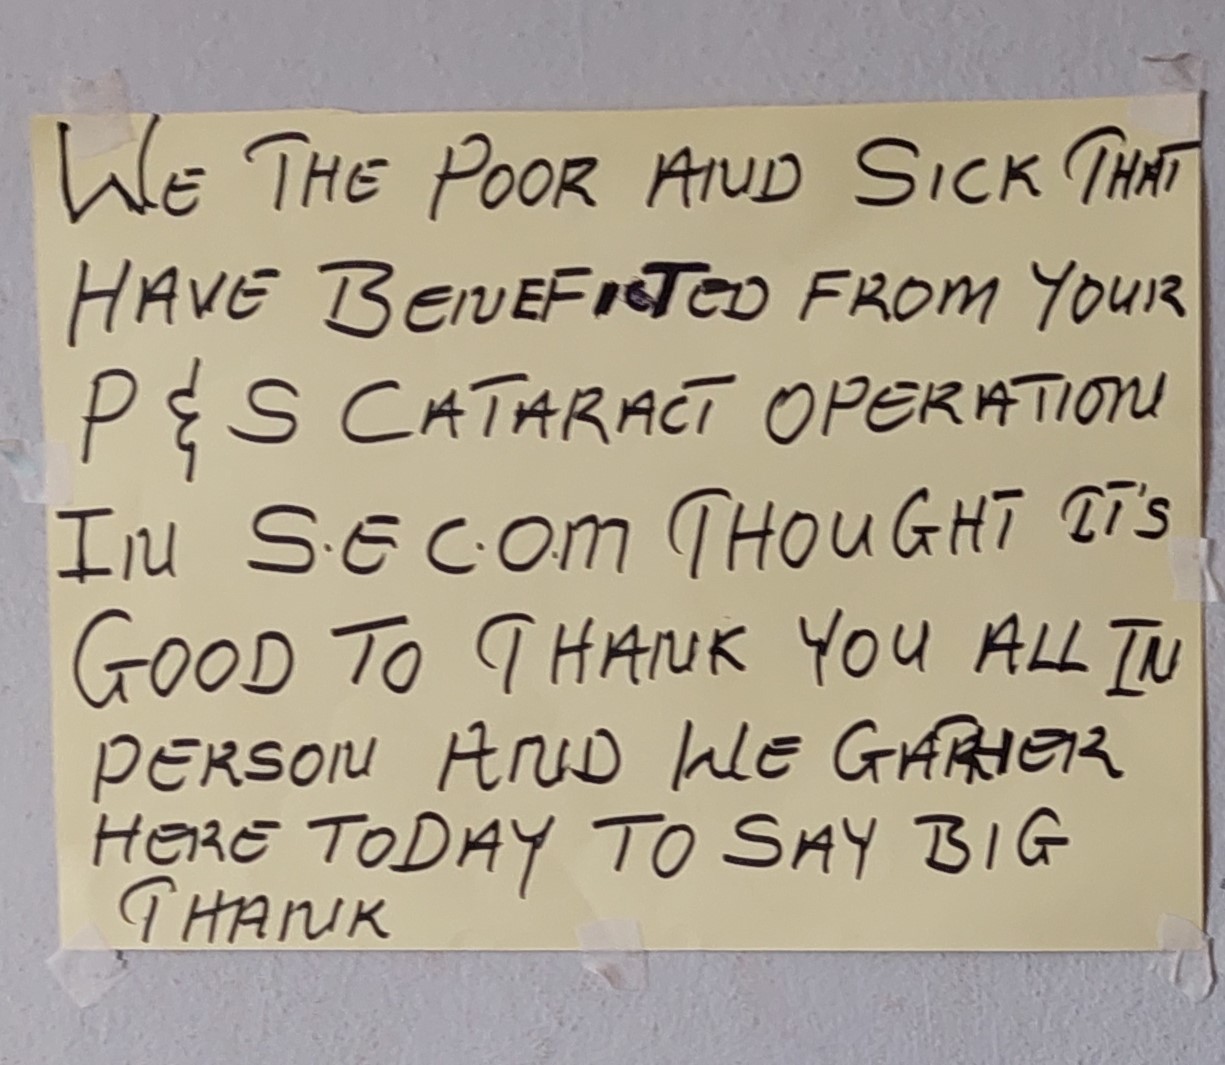 WE THE POOR AND SICK THAT
HAVE BENEFITED FROM YOUR
P & S CATARACT OPERATION
IN S.E C.O.M THOUGHT IT'S
GOOD TO THANK YOU ALL IN
PERSON AND WE GATHER
HERE TODAY TO SAY BIG
THANK